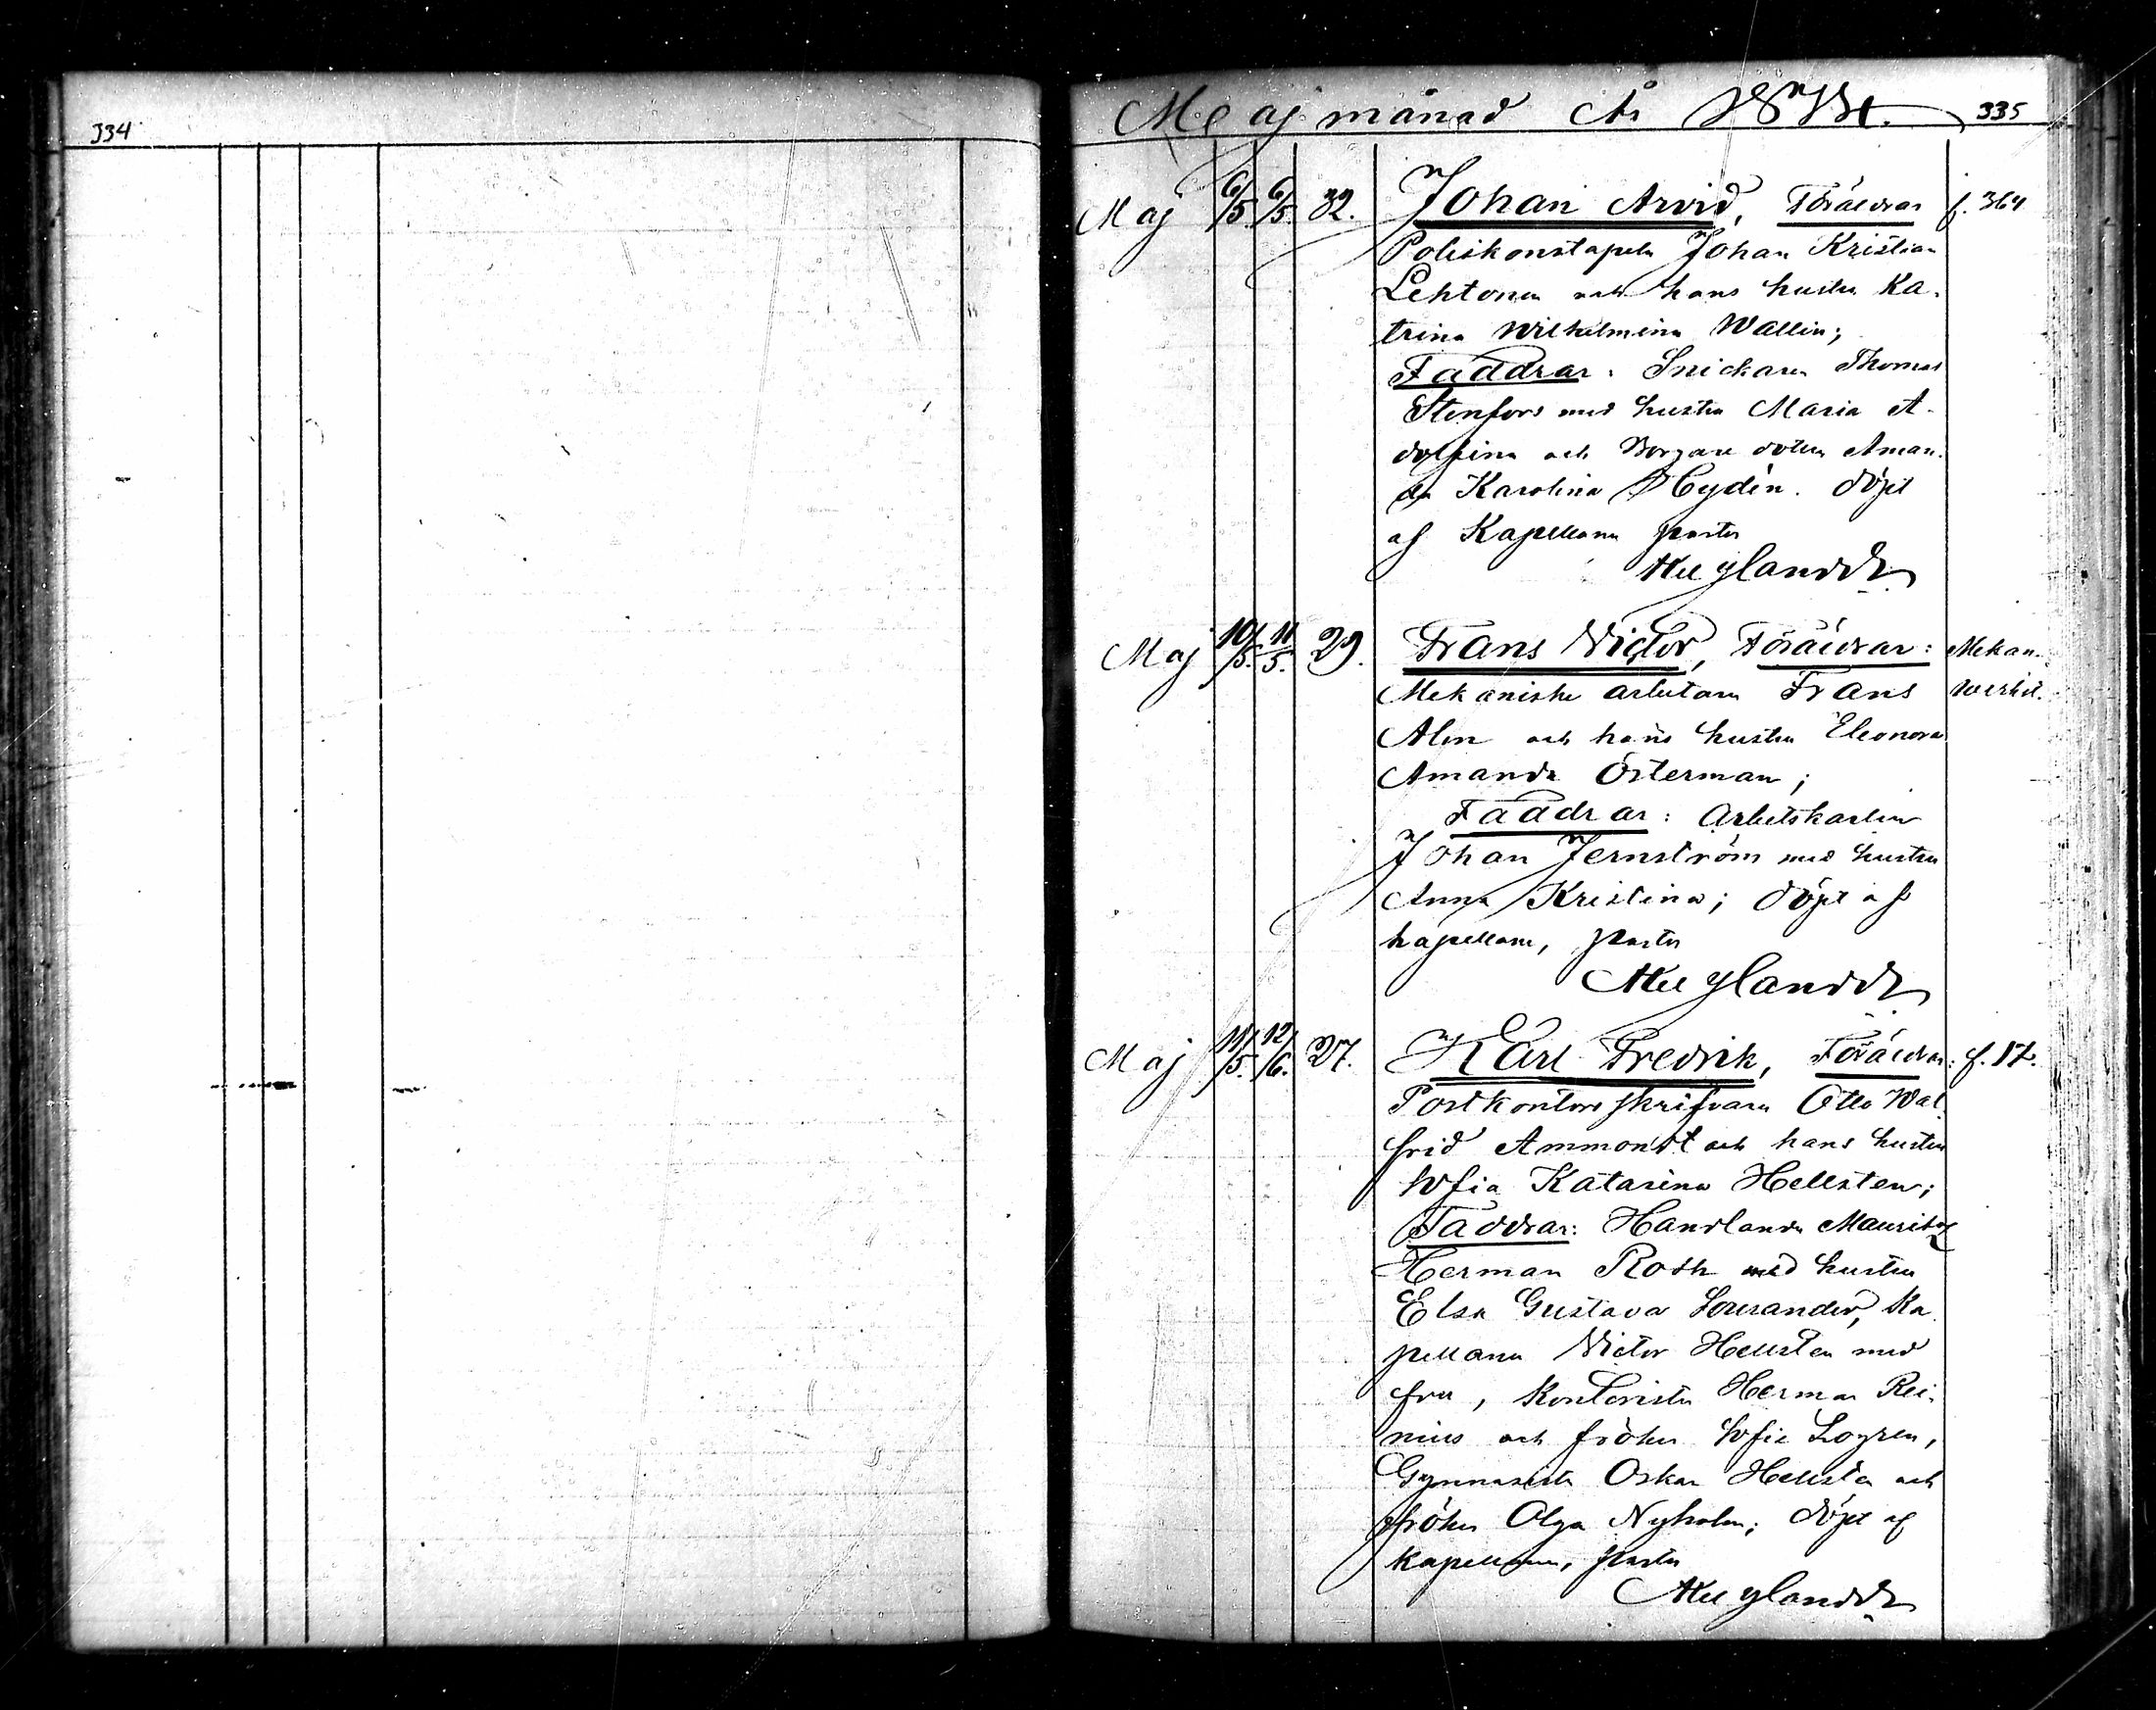 334
Maj månad År 335
Maj 6/5. 6/5. 32. Johan Arvid, Föräldrar f. 364
Poliskonstapeln Johan Kristian
Lehtonen och hans hustru Ka-
trina Wilhelmina Wallin;
Faddrar: Snickaren Thomas
Stenfors med hustru Maria A-
dolfina och Borgare dottern Aman-
da Karolina Hydén. döpt
af Kapellanen pastor
Maj 10/5. 11/5. 29. Frans Victor, Föräldrar: Mekan.
Mekaniske arbetaren Frans werkst.
Alen och hans hustru Eleonora
Amanda Österman;
Faddrar: Arbetskarlen
Johan Jernström med hustru
Anna Kristina; döpt af
kapellanen, pastor
Maj 11/5. 12/6. 27. Karl Fredrik, Föräldrar: f. 17.
Postkontors skrifvaren Otto Wal-
frid Ammondt och hans hustru
Sofia Katarina Hellsten;
Faddrar: Handlanden Mauritz
Herman Roth med hustru
Elsa Gustava Lourander, Ka-
pellanen Victor Hellsten med
fru, Kontoristen Herman Rei-
nius och fröken Sofie Logren,
Gymnasisten Oskar Hellsten och
fröken Olga Nyholm; döpt af
kapellanen, pastor